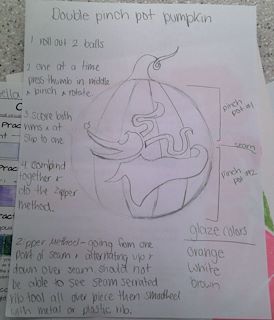 Double pinch pot pumpkin
1 roll out 2 balls
2 one at a time
press thumb in middle
& pinch & rotate.
3. score both
rims & at
slip to one
4 combind
together &
do the zipper
method.
pinch
pot #1
seam
pinch
pot #2
glaze colors
orange
white
brown
Zipper method - going from one
part of seam & alternating up &
down over seam should not
be able to see seam serrated
rib tool all over piece then smooth
with metal or plastic rib.
Prac
Prac